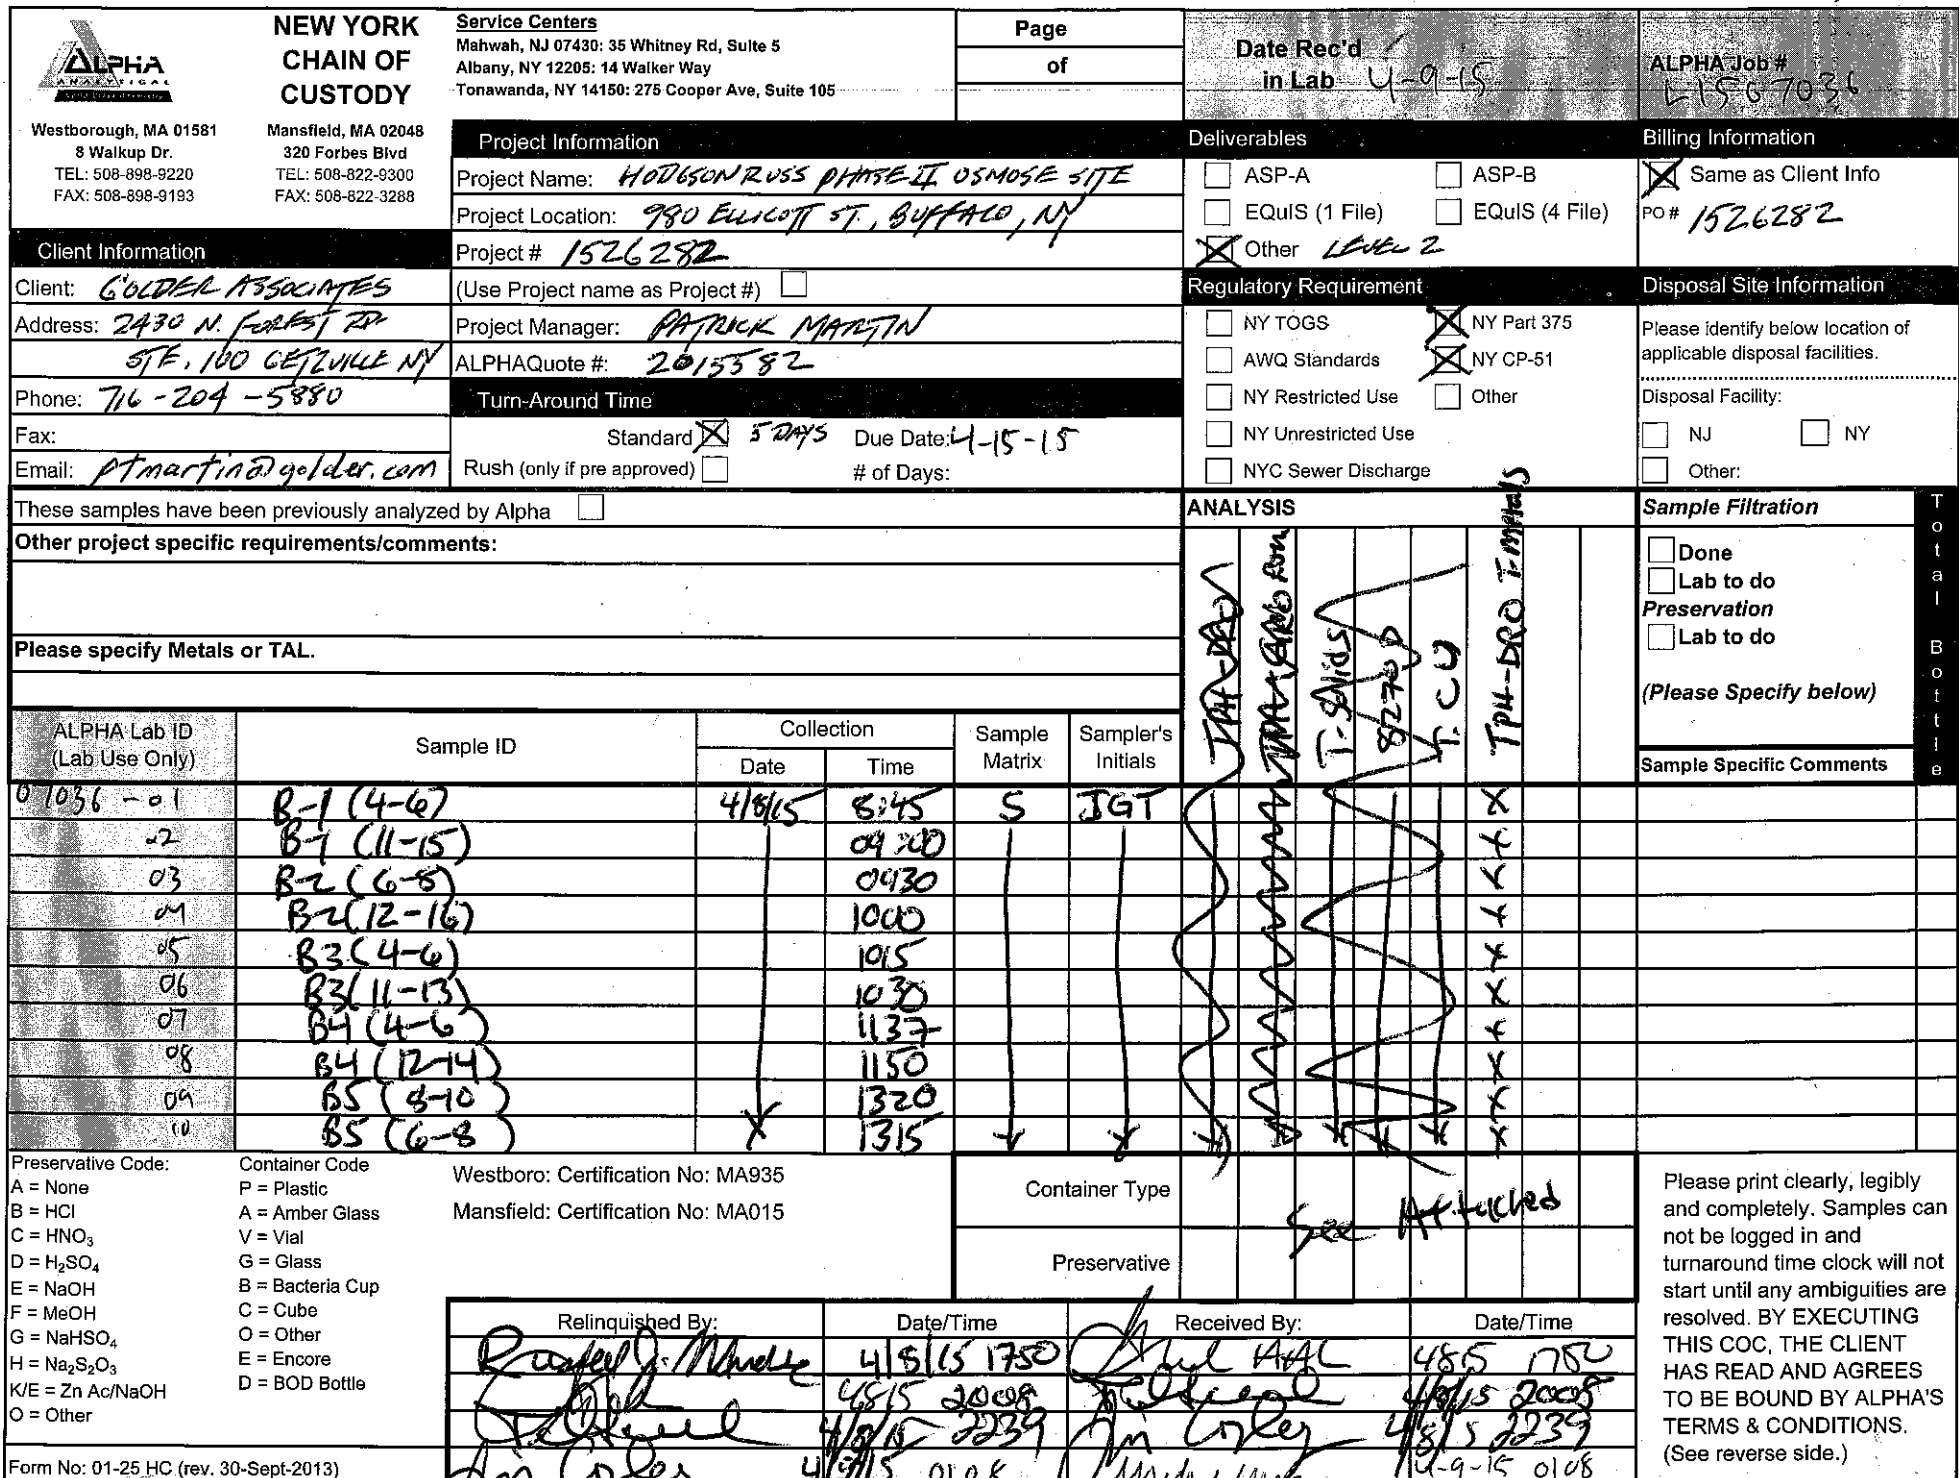 ALPHA
ANALYTICAL
Westborough, MA 01581
8 Walkup Dr.
TEL: 508-898-9220
FAX: 508-898-9193
NEW YORK
CHAIN OF
CUSTODY
Mansfield, MA 02048
320 Forbes Blvd
TEL: 508-822-9300
FAX: 508-822-3288
Service Centers
Mahwah, NJ 07430: 35 Whitney Rd, Suite 5
Albany, NY 12205: 14 Walker Way
Tonawanda, NY 14150: 275 Cooper Ave, Suite 105
Page
of
Date Rec'd
in Lab 4-9-15
ALPHA Job #
L1507036
Client Information
Client: GOLDER ASSOCIATES
Address: 2430 N. FOREST RD.
STE. 100 GETZVILLE NY
Phone: 716-204-5880
Fax:
Email: ptmartin@golder.com
Project Information
Project Name: HODGSON RUSS PHASE II OSMOSE SITE
Project Location: 980 ELLICOTT ST., BUFFALO, NY
Project # 1526282
(Use Project name as Project #)
Project Manager: PATRICK MARTIN
ALPHAQuote #: 2015582
Turn-Around Time
Standard X 5 DAYS Due Date: 4-15-15
Rush (only if pre approved) # of Days:
Deliverables
ASP-A ASP-B
EQuIS (1 File) EQuIS (4 File)
X Other LEVEL 2
Regulatory Requirement
NY TOGS X NY Part 375
AWQ Standards X NY CP-51
NY Restricted Use Other
NY Unrestricted Use
NYC Sewer Discharge
Billing Information
X Same as Client Info
PO # 1526282
Disposal Site Information
Please identify below location of
applicable disposal facilities.
Disposal Facility:
NJ NY
Other:
These samples have been previously analyzed by Alpha
Other project specific requirements/comments:
Please specify Metals or TAL.
ANALYSIS
TPH-DRO
T-Solids
8270
TPH-DRO T-Metals
Sample Filtration
Done
Lab to do
Preservation
Lab to do
(Please Specify below)
Total Bottle
ALPHA Lab ID
(Lab Use Only)
Sample ID
Collection
Date Time
Sample
Matrix
Sampler's
Initials
Sample Specific Comments
07036-01 B-1 (4-6) 4/8/15 8:45 S JGT X
02 B-1 (11-15) 09:00 X
03 B-2 (6-8) 0930 X
04 B-2 (12-16) 1000 X
05 B3 (4-6) 1015 X
06 B3 (11-13) 1030 X
07 B4 (4-6) 1137 X
08 B4 (12-14) 1150 X
09 B5 (8-10) 1320 X
10 B5 (6-8) 1315 X
Preservative Code:
A = None
B = HCl
C = HNO₃
D = H₂SO₄
E = NaOH
F = MeOH
G = NaHSO₄
H = Na₂S₂O₃
K/E = Zn Ac/NaOH
O = Other
Container Code
P = Plastic
A = Amber Glass
V = Vial
G = Glass
B = Bacteria Cup
C = Cube
O = Other
E = Encore
D = BOD Bottle
Westboro: Certification No: MA935
Mansfield: Certification No: MA015
Container Type
See Attached
Preservative
Relinquished By: Date/Time Received By: Date/Time
4/8/15 1750 AAL 4815 1750
4815 2008 4/8/15 2008
4/8/15 2239 4/8/15 2239
4/9/15 0108 4-9-15 0108
Please print clearly, legibly
and completely. Samples can
not be logged in and
turnaround time clock will not
start until any ambiguities are
resolved. BY EXECUTING
THIS COC, THE CLIENT
HAS READ AND AGREES
TO BE BOUND BY ALPHA'S
TERMS & CONDITIONS.
(See reverse side.)
Form No: 01-25 HC (rev. 30-Sept-2013)